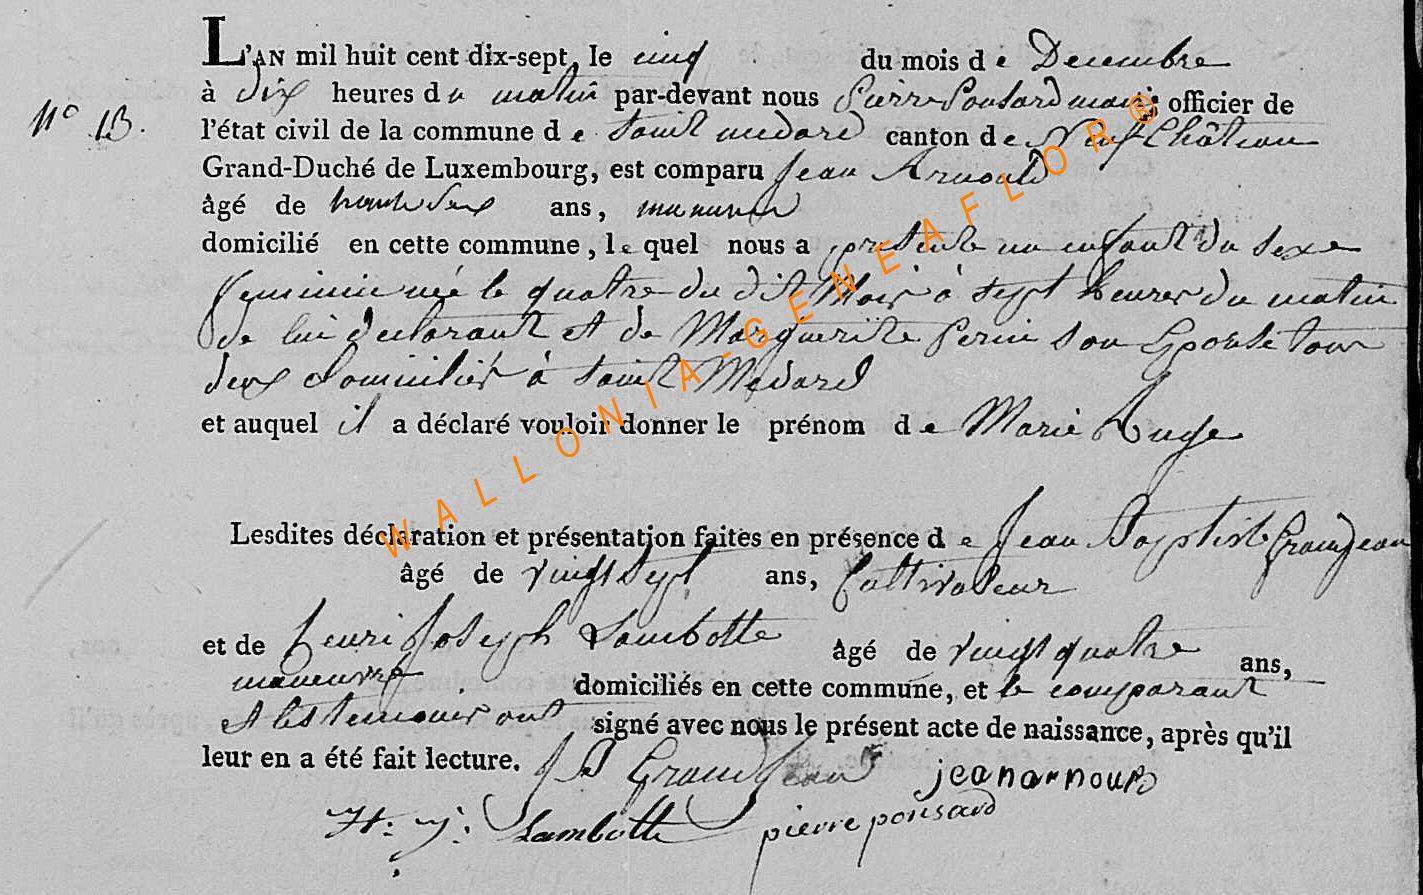 L'AN mil huit cent dix-sept, le cinq du mois de Decembre
à dix heures du matin par-devant nous Pierre Ponsard maire officier de
N° 13.
l'état civil de la commune de saint medard canton de Neufchâteau
Grand-Duché de Luxembourg, est comparu Jean Arnould
âgé de trente deux ans, manuvre
domicilié en cette commune, lequel nous a presenté un enfant du sexe
feminin née le quatre du dit Mois à sept heures du matin
de lui declarant et de Marguerite Perin son Epouse tous
deux domiciliés à saint Medard
et auquel il a déclaré vouloir donner le prénom de Marie
Lesdites déclaration et présentation faites en présence de Jean Baptiste Grandjean
âgé de vingt sept ans, Cultivateur
et de henri Joseph Lambotte âgé de vingt quatre ans,
maneuvre domiciliés en cette commune, et le comparant
et les temoins ont signé avec nous le présent acte de naissance, après qu'il
leur en a été fait lecture. J B Grandjean jean arnould
H: J: Lambotte pierre ponsard
WALLONIA-GENEAFLOR®